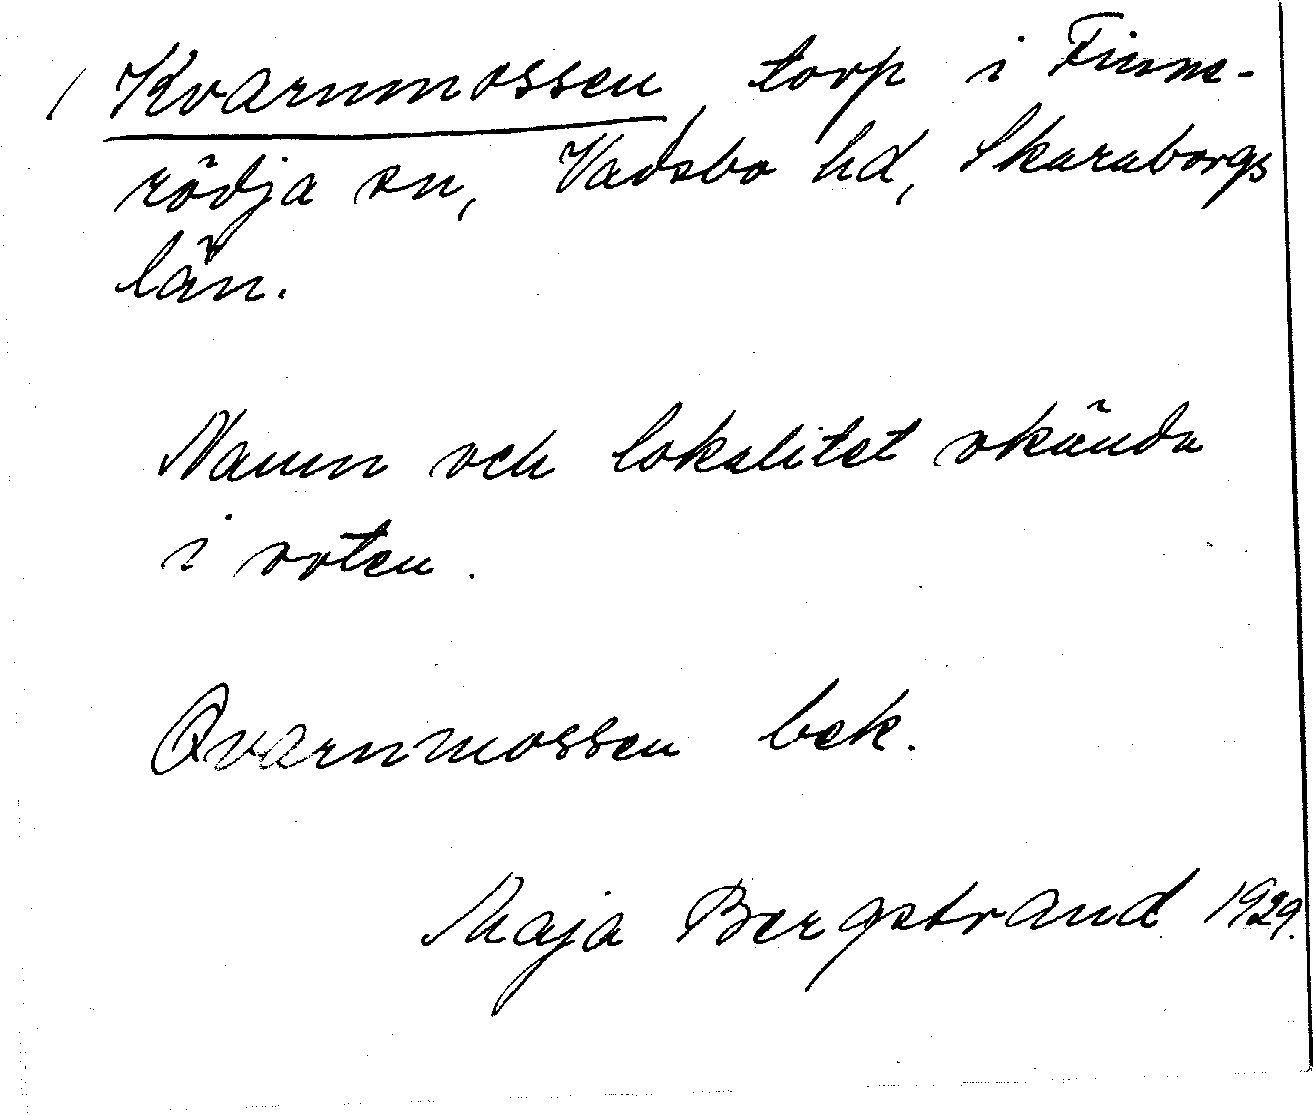 / Kvarnmossen, torp i Finne-
rödja sn, Vadsbo hd, Skaraborgs
län.
Namn och lokalitet okända
i orten.
Qvarnmossen bek.
Maja Bergstrand 1929.